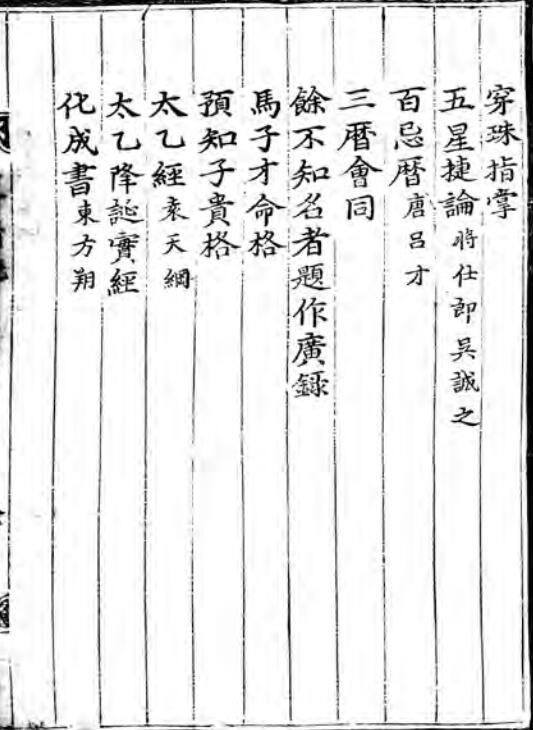 穿珠指掌
五星捷論 將仕郎吳誠之
百忌曆 唐呂才
三曆會同
餘不知名者題作廣録
馬子才命格
預知子貴格
太乙經 袁天綱
太乙降誕寶經
化成書 東方朔